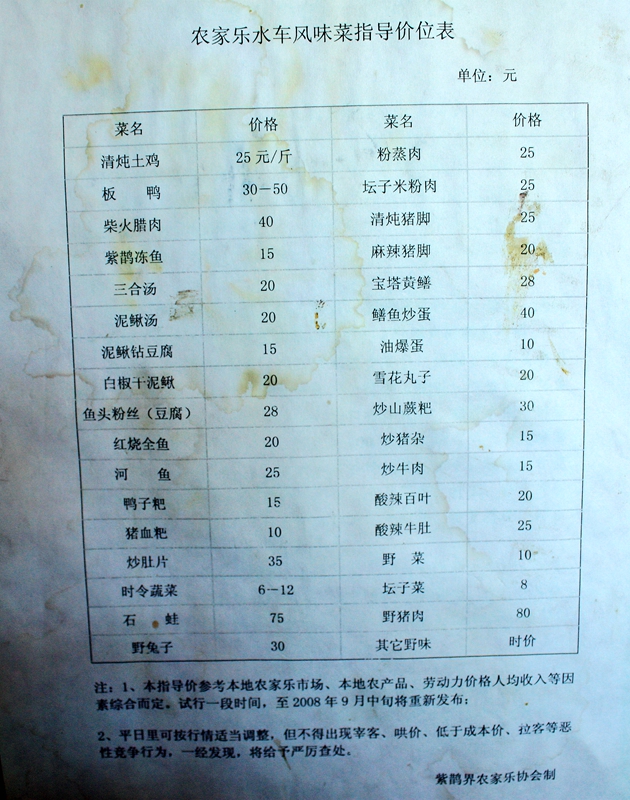 农家乐水车风味菜指导价位表
单位：元
菜名 价格 菜名 价格
清炖土鸡 25元/斤 粉蒸肉 25
板 鸭 30－50 坛子米粉肉 25
柴火腊肉 40 清炖猪脚 25
紫鹊冻鱼 15 麻辣猪脚 20
三合汤 20 宝塔黄鳝 28
泥鳅汤 20 鳝鱼炒蛋 40
泥鳅钻豆腐 15 油爆蛋 10
白椒干泥鳅 20 雪花丸子 20
鱼头粉丝（豆腐） 28 炒山蕨粑 30
红烧全鱼 20 炒猪杂 15
河 鱼 25 炒牛肉 15
鸭子粑 15 酸辣百叶 20
猪血粑 10 酸辣牛肚 25
炒肚片 35 野 菜 10
时令蔬菜 6－12 坛子菜 8
石 蛙 75 野猪肉 80
野兔子 30 其它野味 时价
注：1、本指导价参考本地农家乐市场、本地农产品、劳动力价格人均收入等因
素综合而定。试行一段时间，至2008年9月中旬将重新发布；
2、平日里可按行情适当调整，但不得出现宰客、哄价、低于成本价、拉客等恶
性竞争行为，一经发现，将给予严厉查处。
紫鹊界农家乐协会制